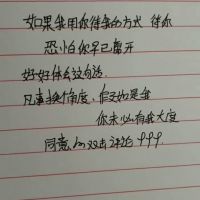 如果我用你待我的方式 待你
恐怕你早已离开
好好体会这句话
凡事换个角度，假如是我
你未必有我大度
同意的双击评论999